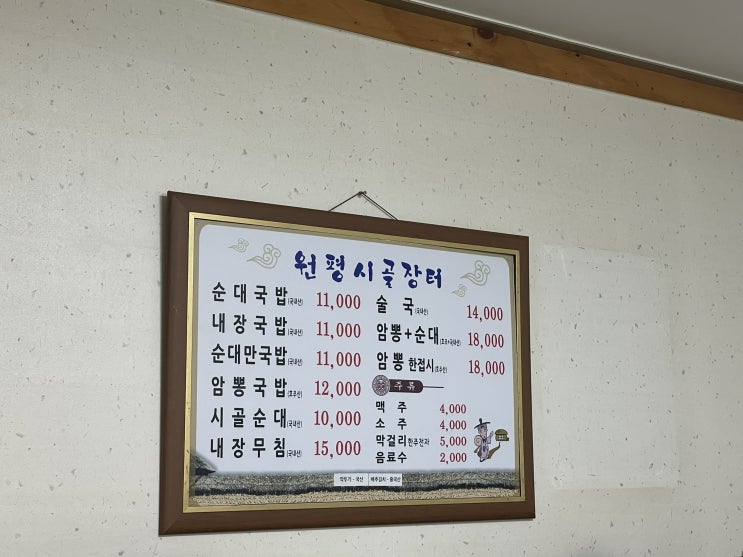 원평시골장터
순대국밥(국내산) 11,000
내장국밥(국내산) 11,000
순대만국밥(국내산) 11,000
암뽕국밥(호주산) 12,000
시골순대(국내산) 10,000
내장무침(국내산) 15,000
술국(국내산) 14,000
암뽕+순대(호주+국내산) 18,000
암뽕 한접시(호주산) 18,000
주류
맥주 4,000
소주 4,000
막걸리 한주전자 5,000
음료수 2,000
깍두기 - 국산 배추김치 - 중국산